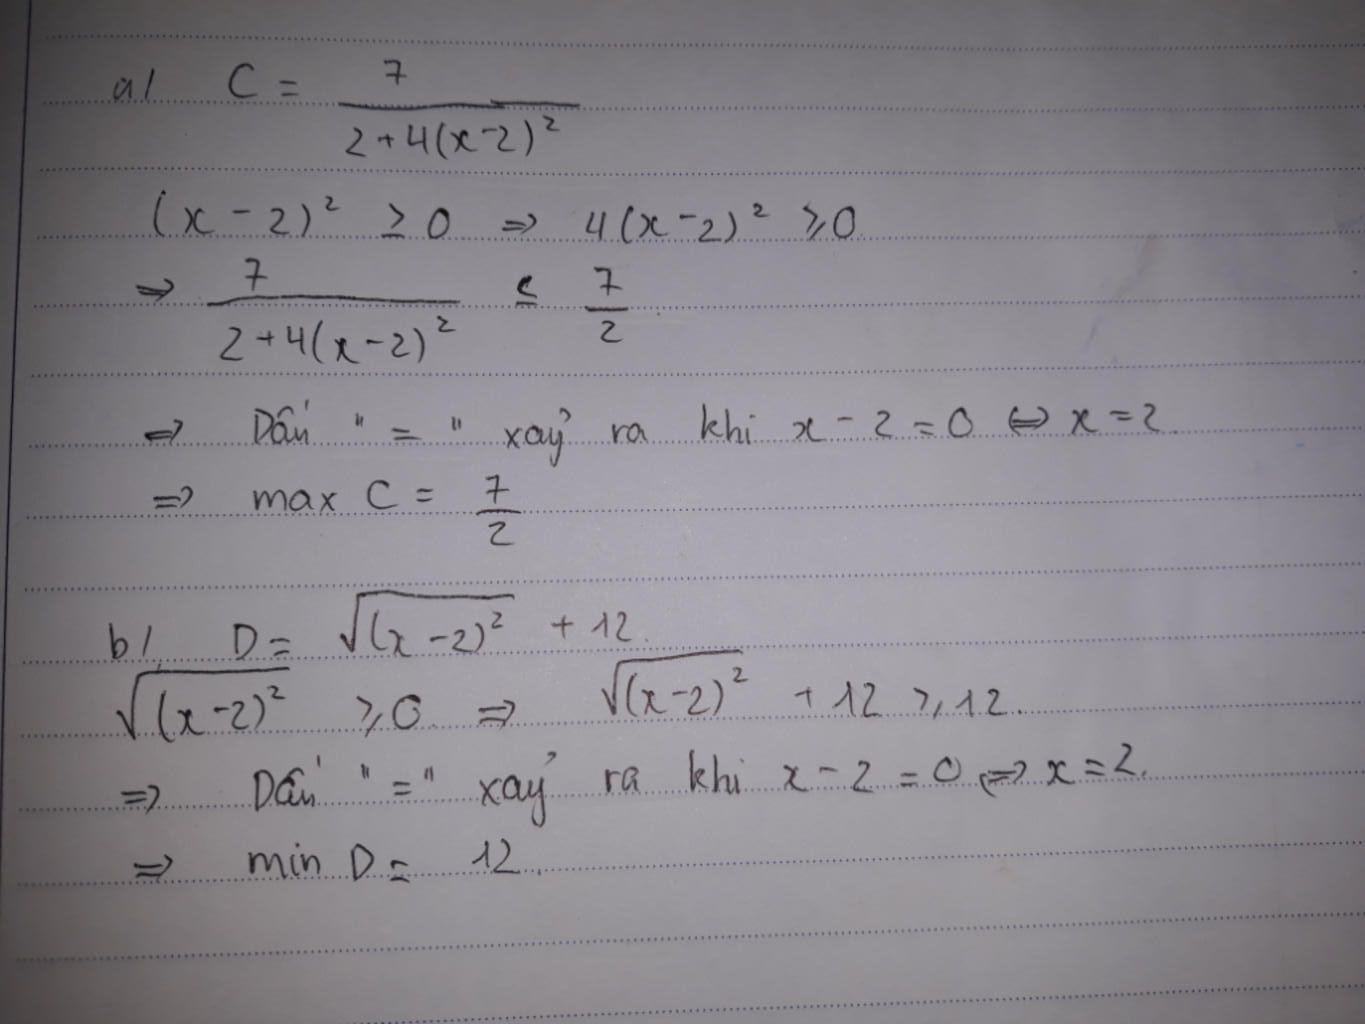 a/ C = 7/(2+4(x-2)²)
(x-2)² ≥ 0 ⇒ 4(x-2)² ≥ 0
⇒ 7/(2+4(x-2)²) ≤ 7/2
⇒ Dấu "=" xảy ra khi x-2=0 ⇔ x=2.
⇒ max C = 7/2
b/ D = √((x-2)²) + 12.
√((x-2)²) ≥ 0 ⇒ √((x-2)²) + 12 ≥ 12.
⇒ Dấu "=" xảy ra khi x-2=0 ⇔ x=2.
⇒ min D = 12.